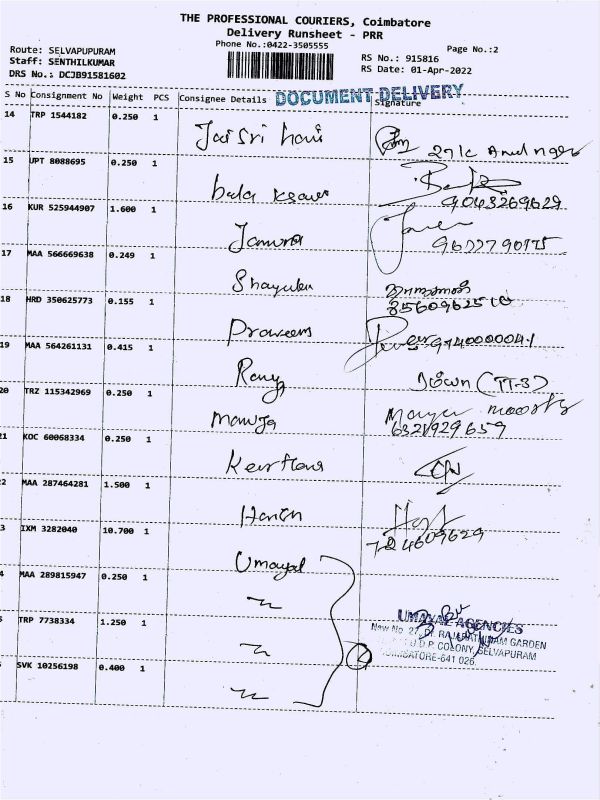 THE PROFESSIONAL COURIERS, Coimbatore
Delivery Runsheet - PRR
Phone No.:0422-3505555
Page No.:2
Route: SELVAPUPURAM
Staff: SENTHILKUMAR
DRS No.: DCJB91581602
RS No.: 915816
RS Date: 01-Apr-2022
DOCUMENT DELIVERY
S No Consignment No Weight PCS Consignee Details Signature
14 TRP 1544182 0.250 1 Jai Sri hari
15 UPT 8088695 0.250 1 bala
9043269629
16 KUR 525944907 1.600 1 Jamuna
17 MAA 566669638 0.249 1
18 HRD 350625773 0.155 1 Praveem
9740000041
19 MAA 564261131 0.415 1
20 TRZ 115342969 0.250 1
6321929659
21 KOC 60068334 0.250 1
2 MAA 287464281 1.500 1 Harish
3 IXM 3282040 10.700 1 Umayal
4 MAA 289815947 0.250 1
TRP 7738334 1.250 1
SVK 10256198 0.400 1
UMAYAL AGENCIES
New No. 27, RAJARATHINAM GARDEN
COLONY, SELVAPURAM
COIMBATORE-641 026.